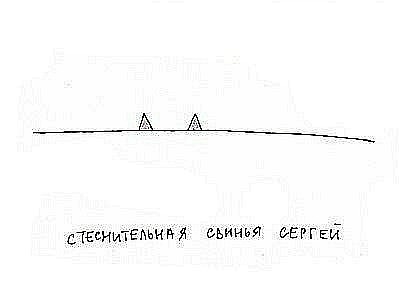 СТЕСНИТЕЛЬНАЯ СВИНЬЯ СЕРГЕЙ